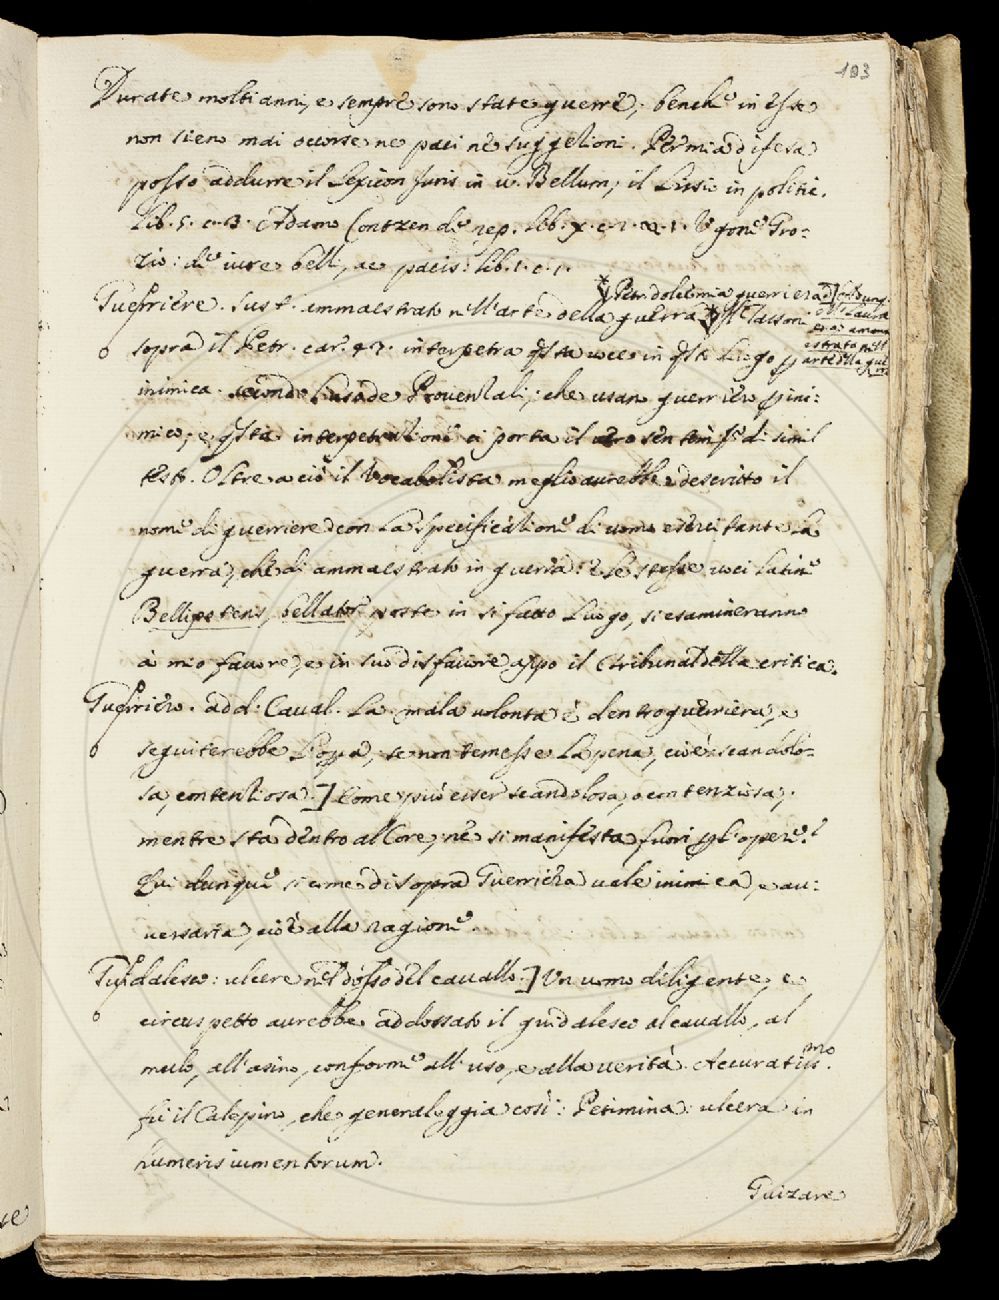 103
Durate molti anni, e sempre sono state guerre; benche in esse
non sieno mai occorse ne paci nè suggezioni. Per mia difesa
posso addurre il Lexicon Juris in u. Bellum; il Lissio in politic.
Lib. 5. c. 3. Adamo Contzen de rep. lib. x. c. 1. Vgone Gro-
zio: de iure belli, ac pacis: lib. 1. c. 1.
Petr. dolce mia guerriera]
Guerriere. Sust. ammaestrato nell'arte della guerra Il Tassoni
Laura
era ammaestrata nell'arte della guerra
o sopra il Petr. car. 47. interpetra questa voce in questo Luogo per
inimica. secondo l'uso de Prouenzali; che usan guerriero per ini-
mico; e questa interpetrazione ci porta il uero sentim.to di simil
testo. Oltre a ciò il Vocabolista meglio aurebbe descritto il
nome di guerriere con la specificazione di uomo esercitante la
guerra, che di ammaestrato in guerra: e le stesse uoci latine
Bellipotens, bellator poste in sì fatto Luogo, si esamineranno
à mio fauore, e in suo disfauore appo il tribunal della critica.
Guerriero. add: Caual. La mala uolontà è dentro guerriera, e
o seguiterebbe l'opra, se non temesse la pena, cioè scandolo-
sa, contenziosa.] Come può esser scandolosa, o contenziosa,
mentre sta dentro al Core, nè si manifesta fuori per l'opere?
Qui dunque si come di sopra Guerriera uale inimica, e au-
uersaria, cioè alla ragione.
Guidalesco: ulcere nel dosso del cauallo.] Un uomo diligente, e
o circuspetto aurebbe addossato il guidalesco al cauallo, al
mulo, all'asino, conforme all'uso, e alla uerità. Accuratiss.mo
fù il Calepino, che generaleggia così: Petimina: ulcera in
humeris iumentorum.
Guizzare